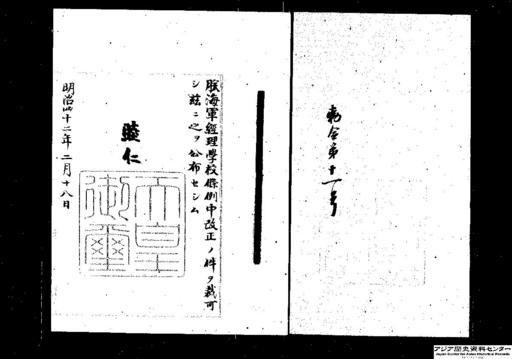 勅令第十一号
朕海軍經理學校條例中改正ノ件ヲ裁可
シ茲ニ之ヲ公布セシム
睦仁
天皇御璽
明治四十二年二月十八日
アジア歴史資料センター
Japan Center for Asian Historical Records